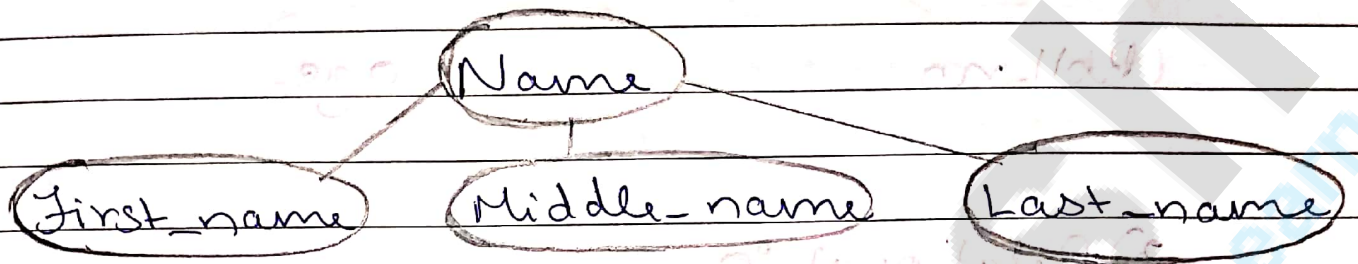 Name
First_name Middle_name Last_name